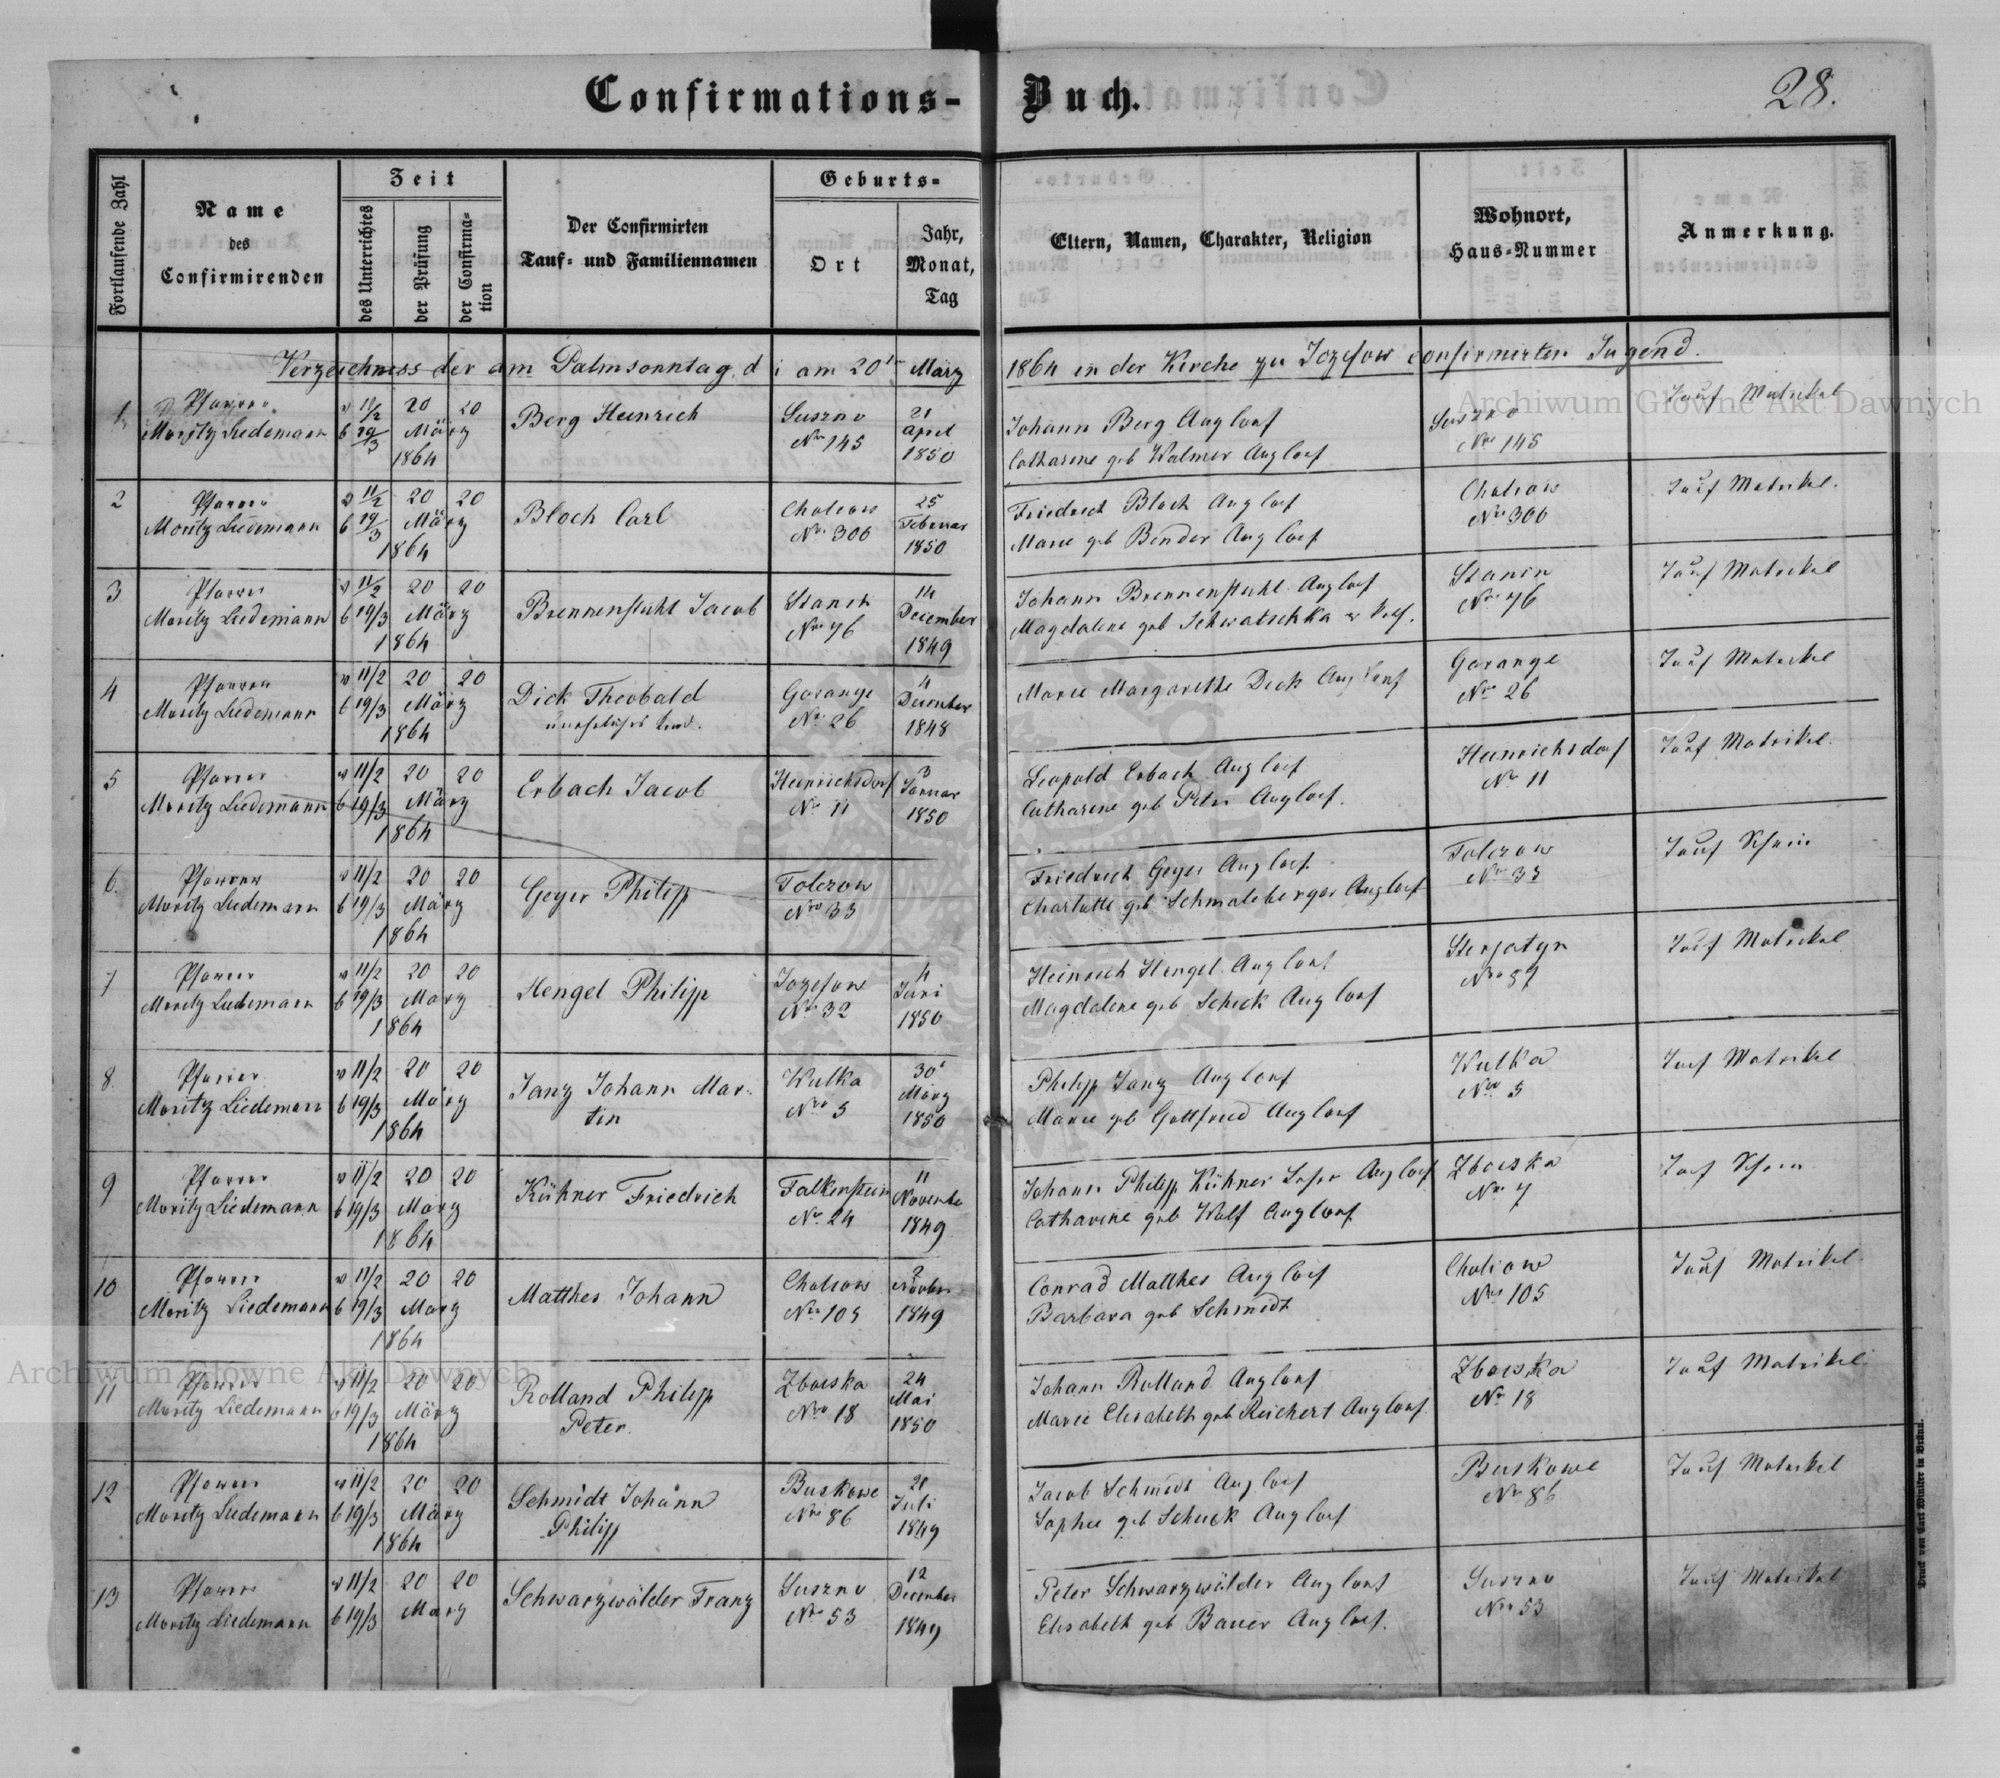 Confirmations-Buch.
28.
Fortlaufende Zahl
Name
des
Confirmirenden
Zeit
des Unterrichtes
der Prüfung
der Confirma-
tion
Der Confirmirten
Tauf- und Familiennamen
Geburts-
Ort
Jahr,
Monat,
Tag
Eltern, Namen, Charakter, Religion
Wohnort,
Haus-Nummer
Anmerkung.
Verzeichniss der am Palmsonntag d i am 20 März 1864 in der Kirche zu Jozefow confirmirten Jugend.
1 Pfarrer 11/2 20 20 Berg Heinrich Suszno 21 Johann Berg Augs Conf Suszno Tauf Matrikel
Moritz Liedemann 19/3 März Nro 145 April Catharine geb Walmer Augs Conf Nro 145
1864 1850
2 Pfarrer 11/2 20 20 Bloch Carl Cholojow 25 Friedrich Bloch Augs Conf Cholojow Tauf Matrikel.
Moritz Liedemann 19/3 März Nro 306 Februar Marie geb Bender Augs Conf Nro 306
1864 1850
3 Pfarrer 11/2 20 20 Brennenstuhl Jacob Stanin 14 Johann Brennenstuhl Augs Conf Stanin Tauf Matrikel
Moritz Liedemann 19/3 März Nro 76 December Magdalene geb Schwatschka Nro 76
1864 1849
4 Pfarrer 11/2 20 20 Dick Theobald Goränge 4 Marie Margarethe Dick Augs Conf Goränge Tauf Matrikel
Moritz Liedemann 19/3 März uneheliches Kind. Nro 26 December Nro 26
1864 1848
5 Pfarrer 11/2 20 20 Erbach Jacob Heinrichsdorf 3 Leopold Erbach Augs Conf Heinrichsdorf Tauf Matrikel.
Moritz Liedemann 19/3 März Nro 11 Januar Catharine geb Peter Augs Conf. Nro 11
1864 1850
6. Pfarrer 11/2 20 20 Geyer Philipp Tolszow Friedrich Geyer Augs Conf. Tolszow Tauf Schein
Moritz Liedemann 19/3 März Nro 33 Charlotte geb Schmaleberger Augs Conf Nro 33
1864
7 Pfarrer 11/2 20 20 Hengel Philipp Jozefow 4 Heinrich Hengel Augs Conf Tauf Matrikel
Moritz Liedemann 19/3 März Nro 32 Juni Magdalene geb Scheck Augs Conf Nro 57
1864 1850
8. Pfarrer 11/2 20 20 Janz Johann Mar- Wulka 30 Philipp Janz Augs Conf Wulka Tauf Matrikel
Moritz Liedemann 19/3 März tin Nro 5 März Marie geb Gottfried Augs Conf Nro 5
1864 1850
9 Pfarrer 11/2 20 20 Kühner Friedrich Falkenstein 11 Johann Philipp Kühner Augs Conf Zboiska Tauf Schein
Moritz Liedemann 19/3 März Nro 24 November Catharine geb Wolf Augs Conf Nro 7
1864 1849
10 Pfarrer 11/2 20 20 Matthes Johann Cholojow 2 Conrad Matthes Augs Conf Cholojow Tauf Matrikel.
Moritz Liedemann 19/3 März Nro 105 November Barbara geb Schmidt Nro 105
1864 1849
11 Pfarrer 11/2 20 20 Rolland Philipp Zboiska 24 Johann Rolland Augs Conf Zboiska Tauf Matrikel.
Moritz Liedemann 19/3 März Peter. Nro 18 Mai Marie Elisabeth geb Reichert Augs Conf. Nro 18
1864 1850
12 Pfarrer 11/2 20 20 Schmidt Johann Buskowe 21 Jacob Schmidt Augs Conf Buskowe Tauf Matrikel
Moritz Liedemann 19/3 März Philipp Nro 86 Juli Sophie geb Scheck Augs Conf Nro 86
1864 1849
13 Pfarrer 11/2 20 20 Schwarzwälder Franz Suszno 12 Peter Schwarzwälder Augs Conf Suszno Tauf Matrikel
Moritz Liedemann 19/3 März Nro 53 December Elisabeth geb Bauer Augs Conf. Nro 53
1849
Druck von Carl Winiker in Brünn.
Archiwum Główne Akt Dawnych
Archiwum Główne Akt Dawnych